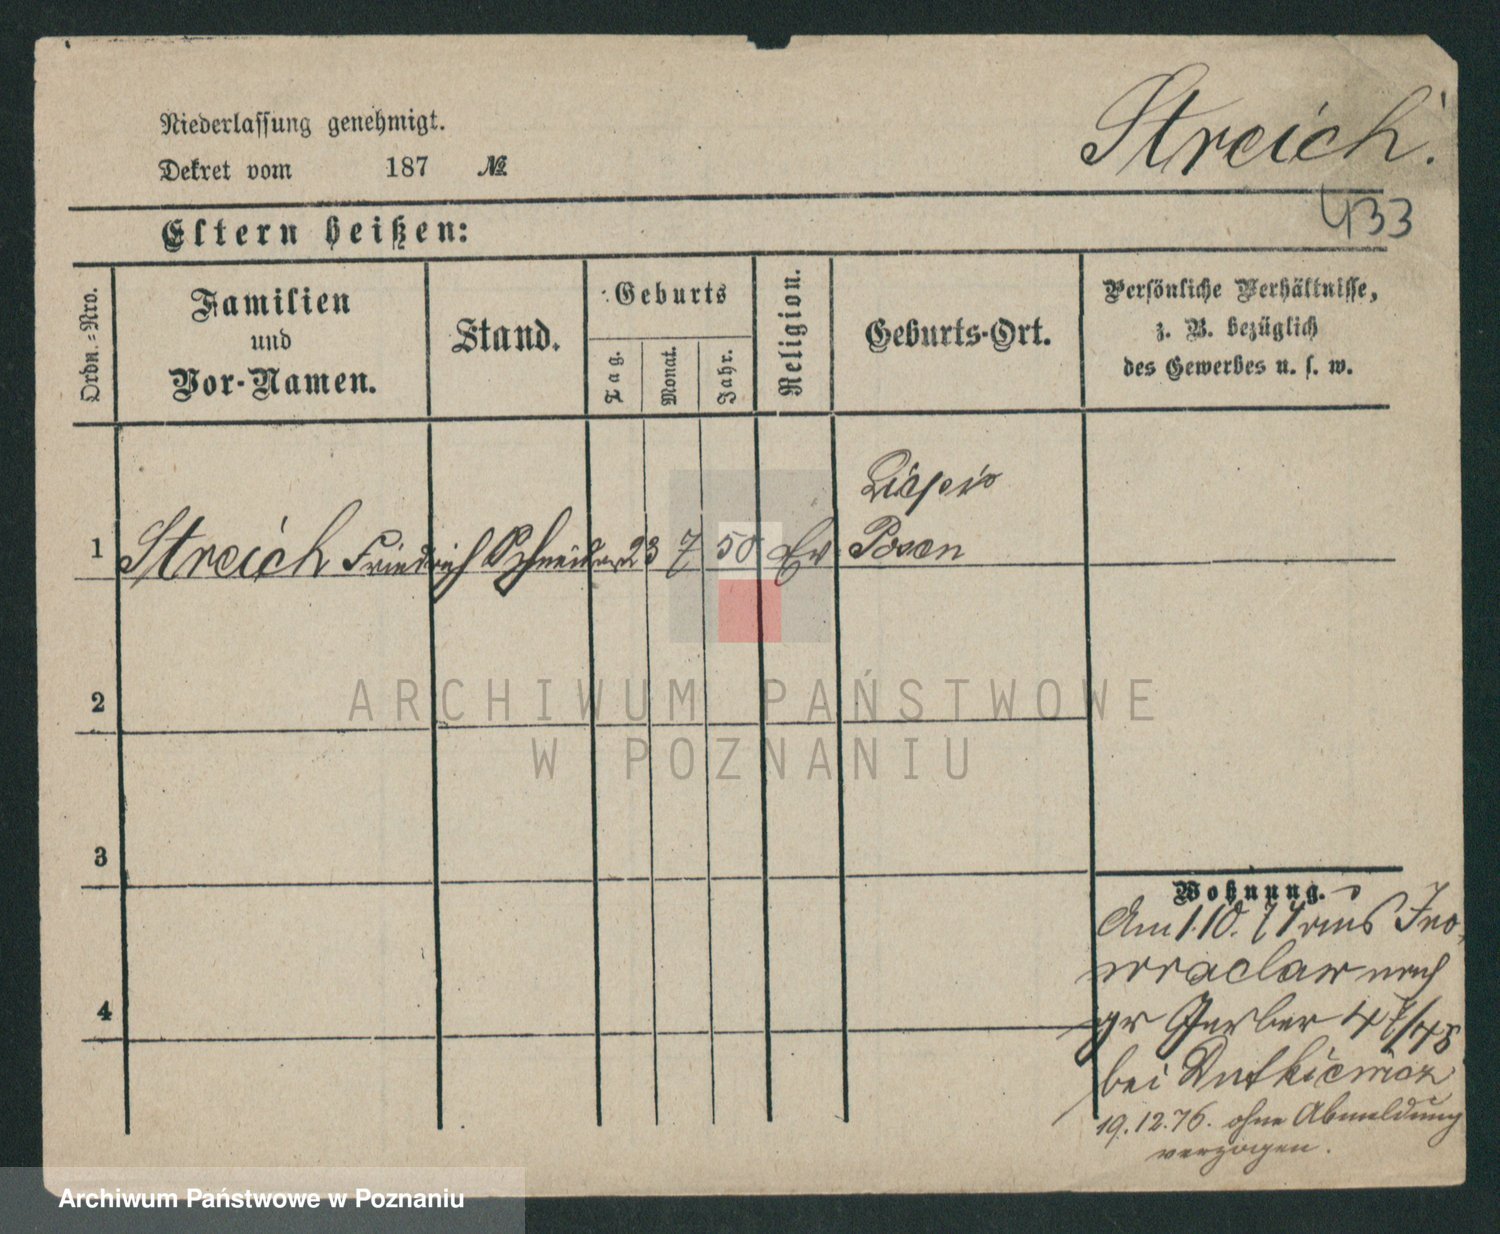 Streich.
Niederlassung genehmigt.
Dekret vom 187 №
433
Eltern heißen:
Ordn.-Nro.
Familien
und
Vor-Namen.
Stand.
Geburts
Tag.
Monat.
Jahr.
Religion.
Geburts-Ort.
Persönliche Verhältnisse,
z. B. bezüglich
des Gewerbes u. s. w.
1 Streich Friedrich Schneider 23 7 50 Ev
Posen
2
ARCHIWUM PAŃSTWOWE
W POZNANIU
3
4
Wohnung.
Am 1.10. 74 aus Ino-
wraclaw nach
gr Gerber
bei Dutkiewicz
19.12.76. ohne Abmeldung
verzogen.
Archiwum Państwowe w Poznaniu